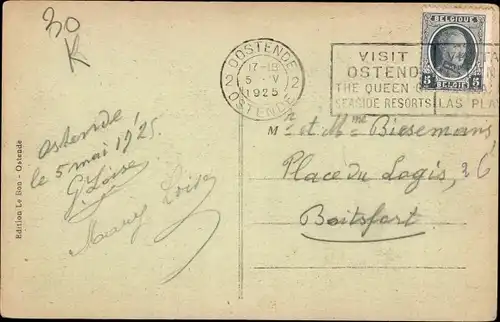 30
K
OOSTENDE
2 17-18 2
5 · V
1925
OSTENDE
VISIT
OSTEND
THE QUEEN O
SEASIDE RESORTS LAS PLA
BELGIQUE
5 5
BELGIË
Ostende
le 5 mai 1925.
G. Loise
Mary Loise
Mr et Mme Biesemans
Place du Logis, 26
Boitsfort
Edition Le Bon - Ostende